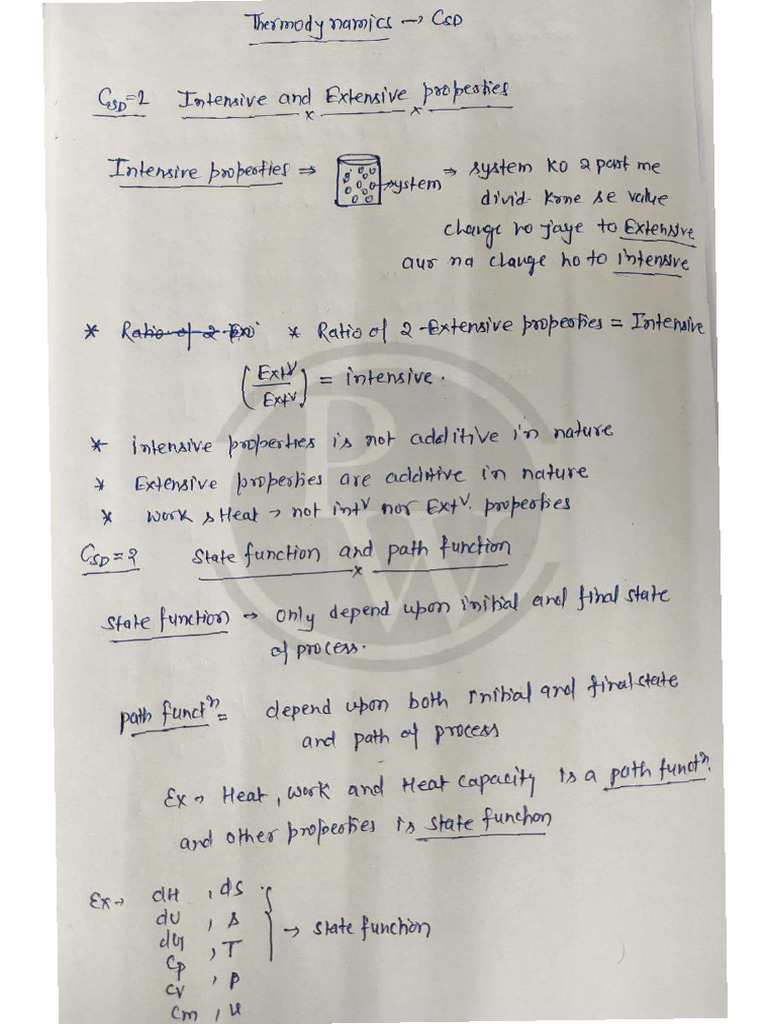 Thermodynamics → CSD
CSD=1 Intensive and Extensive properties
Intensive properties ⇒ system → system ko 2 part me
divid. krne se value
change ho jaye to Extensive
aur na change ho to intensive
* Ratio of 2 Ex * Ratio of 2-Extensive properties = Intensive
(Extv/Extv) = intensive.
* intensive properties is not additive in nature
* Extensive properties are additive in nature
* work & Heat → not intv nor Extv. properties
CSD=2 State function and path function
state function → only depend upon initial and final state
of process.
path functn = depend upon both initial and final state
and path of process
Ex → Heat, work and Heat capacity is a path functn.
and other properties is state function
Ex → dH , ds
dU , s
dG , T → state function
Cp
Cv , P
Cm , u
PW